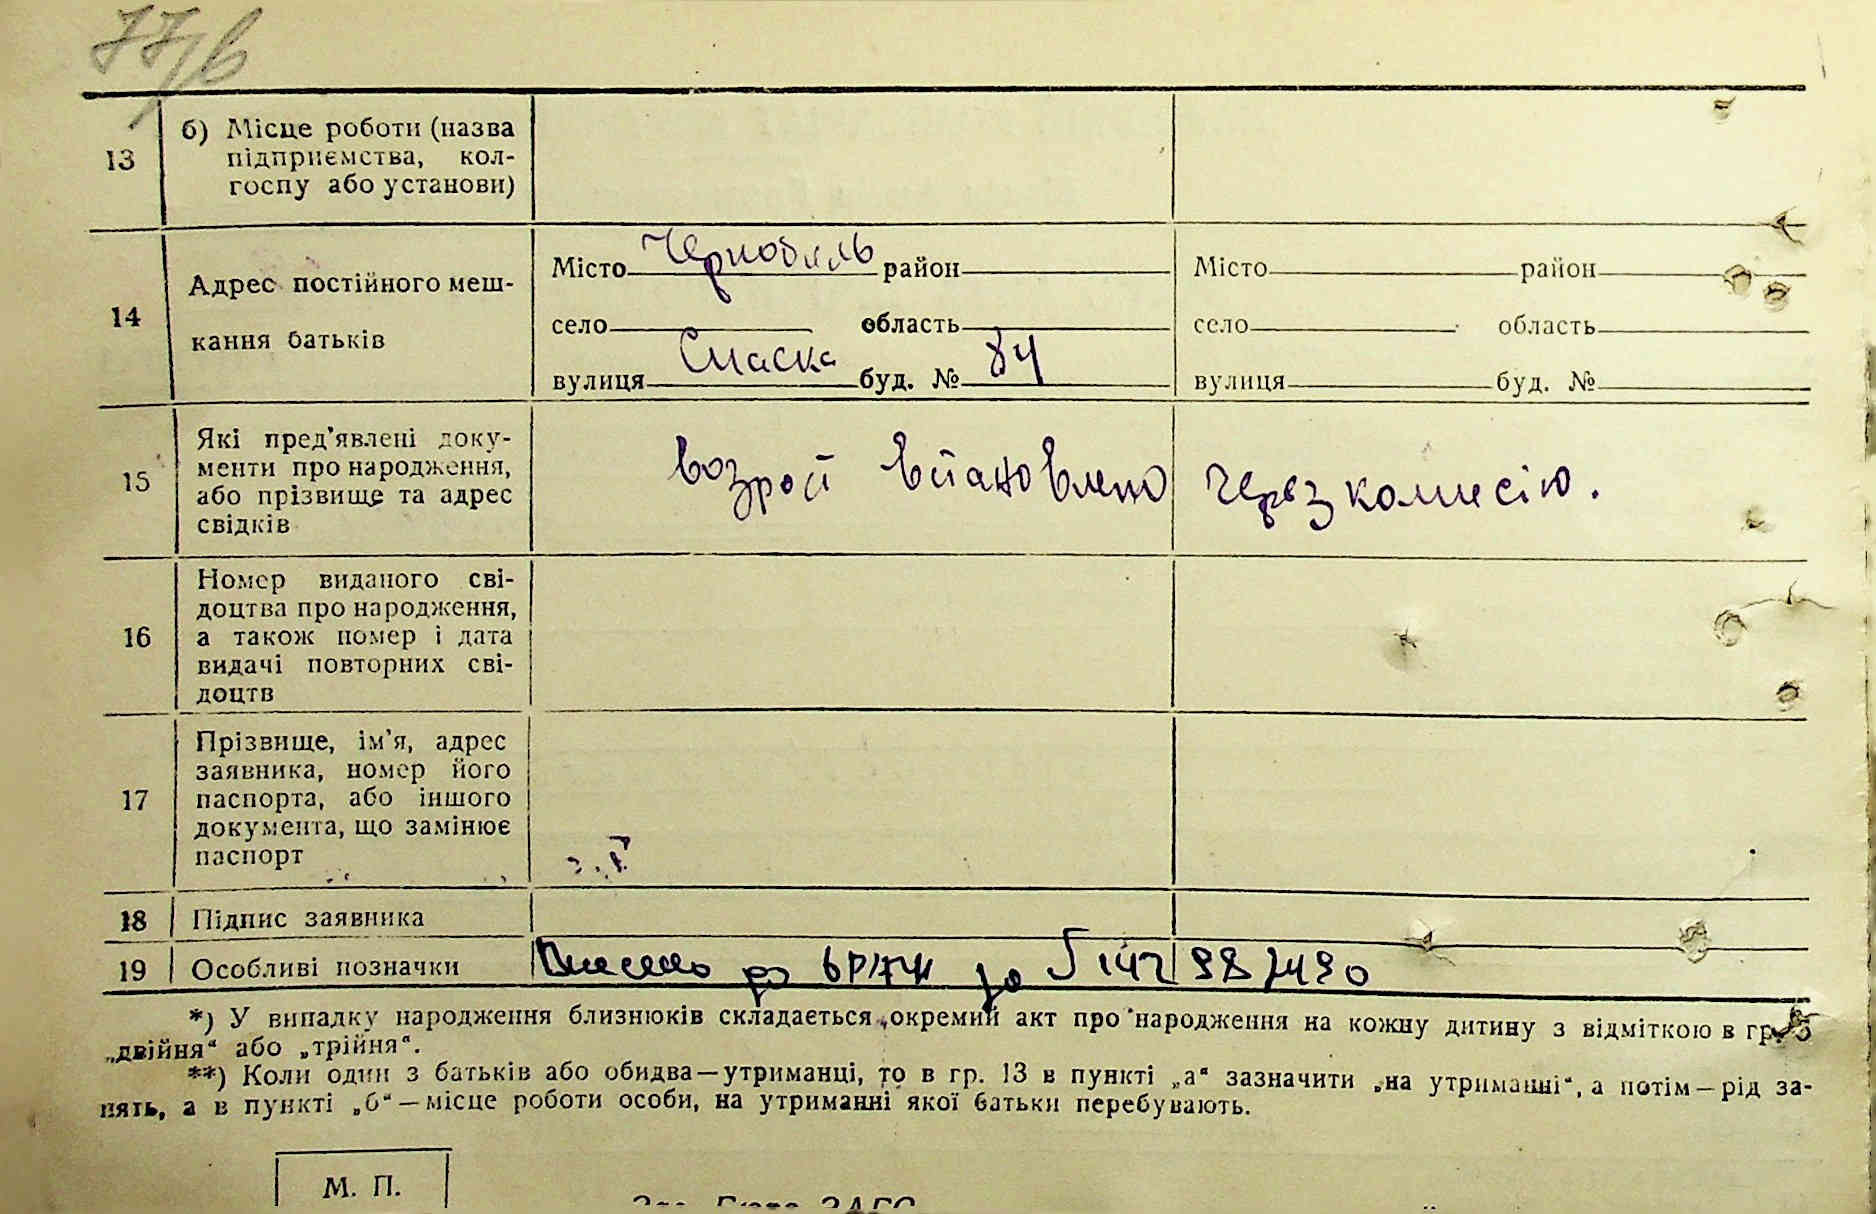 77/в
13 б) Місце роботи (назва
підприємства, кол-
госпу або установи)
14 Адрес постійного меш-
кання батьків
Місто Чернобиль район
село область
вулиця буд. № 84
Місто район
село область
вулиця буд. №
15 Які пред'явлені доку-
менти про народження,
або прізвище та адрес
свідків
возрост встановлено через комисію.
16 Номер виданого сві-
доцтва про народження,
а також номер і дата
видачі повторних сві-
доцтв
17 Прізвище, ім'я, адрес
заявника, номер його
паспорта, або іншого
документа, що замінює
паспорт
18 Підпис заявника
19 Особливі позначки
Внесено до
*) У випадку народження близнюків складається окремий акт про народження на кожну дитину з відміткою в гр. 5
„двійня“ або „трійня“.
**) Коли один з батьків або обидва—утриманці, то в гр. 13 в пункті „а“ зазначити „на утриманні“, а потім—рід за-
нять, а в пункті „б“—місце роботи особи, на утриманні якої батьки перебувають.
М. П.